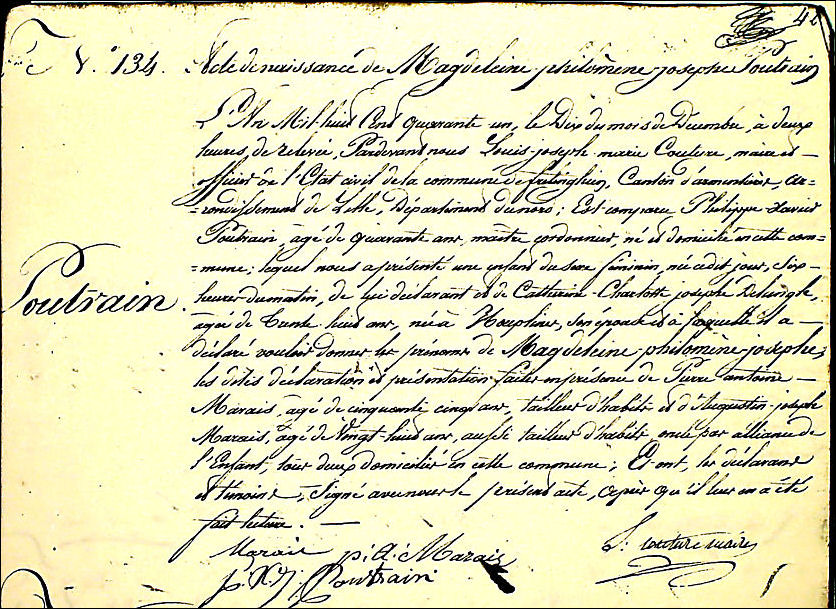 42
N.° 134. Acte de naissance de Magdeleine-philomène-josephe Poutrain
L'An Mil huit Cent quarante-un, le Dix du mois de Décembre, à deux
heures de relevée, Pardevant nous Louis-joseph-marie Couture, maire et
officier de l'Etat civil de la commune de frelinghien, Canton d'armentières, ar-
=rondissement de Lille, Département du nord; Est comparu Philippe-Xavier
Poutrain, âgé de quarante ans, maître cordonnier, né et domicilié en cette com-
=mune; lequel nous a présenté une enfant du sexe féminin, née cedit jour, Six
heures du matin, de lui déclarant et de Catherine-Charlotte-josephe Delangle,
âgée de Trente-huit ans, née à Houplines, son épouse et à laquelle il a
déclaré vouloir donner les prénoms de Magdeleine-philomène-josephe;
les dites déclaration et présentation faites en présence de Pierre antoine
Marais, âgé de cinquante cinq ans, tailleur d'habits et d'Augustin-joseph
Marais, âgé de Vingt-huit ans, aussi tailleur d'habits, oncle par alliance de
l'Enfant, tous deux domiciliés en cette commune; Et ont, les déclarant
et témoins, Signé avec nous le présent acte, après qu'il leur en a été
fait lecture.
Poutrain.
Marais p. A. Marais L. couture maire
p. X. Poutrain